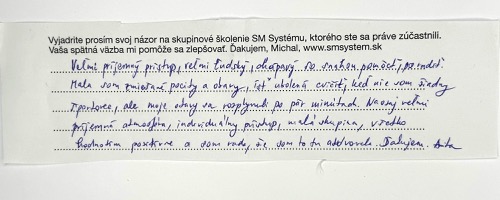 Vyjadrite prosím svoj názor na skupinové školenie SM Systému, ktorého ste sa práve zúčastnili.
Vaša spätná väzba mi pomôže sa zlepšovať. Ďakujem, Michal, www.smsystem.sk
Veľmi príjemný prístup, veľmi ľudský, so snahou pomôcť,
Mala som zmiešané pocity a obavy, ísť cvičiť, keď nie som žiadny
športovec, ale moje obavy sa rozplynuli po pár minútach. Naozaj veľmi
príjemná atmosféra, individuálny prístup, malá skupina, všetko
hodnotím pozitívne a som rada, že som to tu absolvovala. Ďakujem.